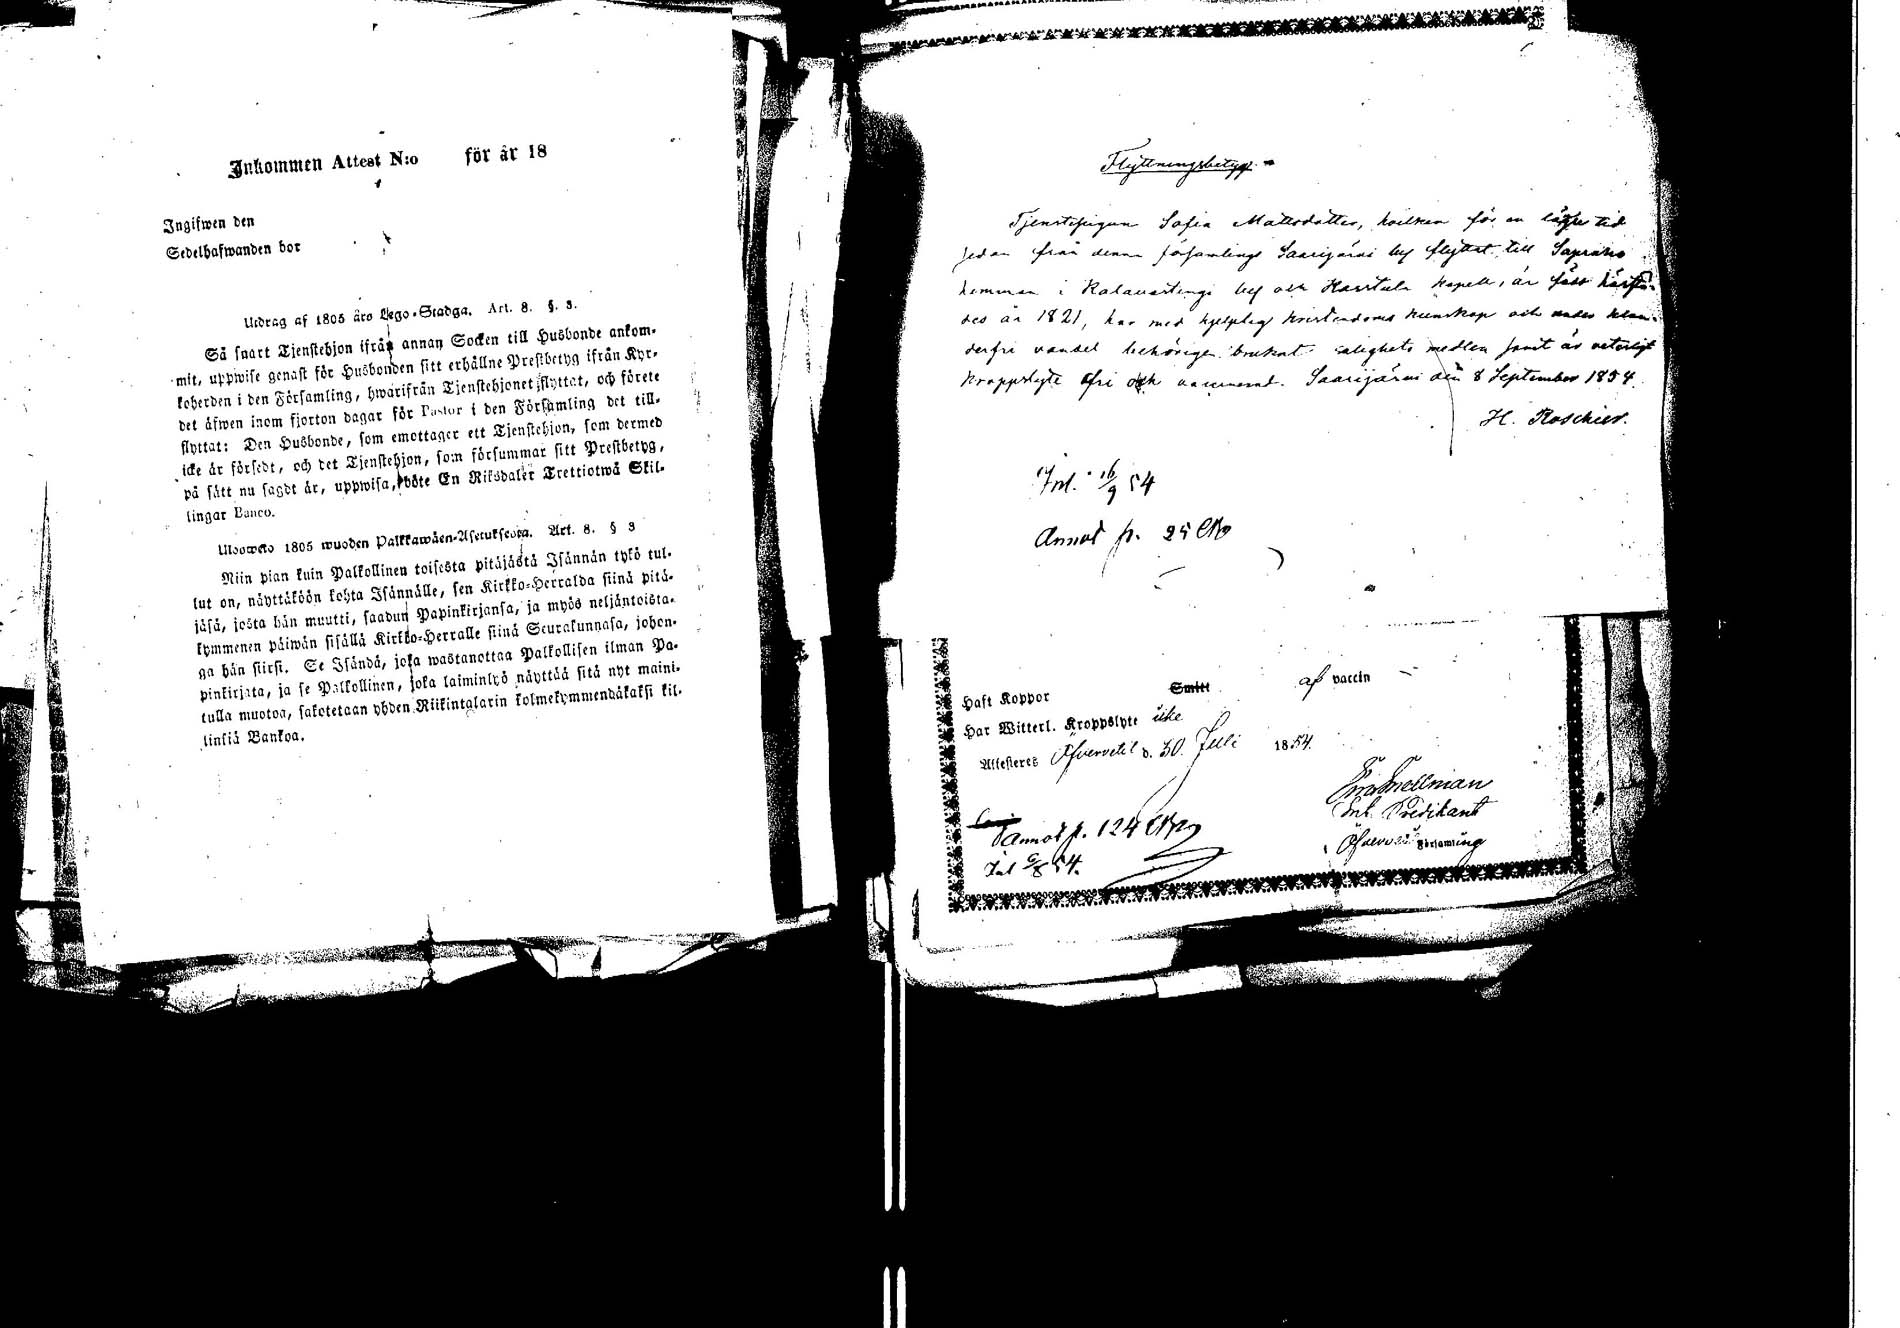 Inkommen Attest N:o för år 18
Ingifwen den
Sedelhafwanden bor
Utdrag af 1805 års Lego-Stadga. Art. 8. §. 3.
Så snart Tjenstehjon ifrån annan Socken till Husbonde ankom-
mit, uppwise genast för Husbonden sitt erhållne Prestbetyg ifrån Kyr-
koherden i den Församling, hwarifrån Tjenstehjonet flyttat, och förete
det äfwen inom fjorton dagar för Pastor i den Församling det till-
flyttat: Den Husbonde, som emottager ett Tjenstehjon, som dermed
icke är försedt, och det Tjenstehjon, som försummar sitt Prestbetyg,
på sätt nu sagdt är, uppwisa, böte En Riksdaler Trettiotwå Skil-
lingar Banco.
Ulosweto 1805 wuoden Palkkawäen-Asetuksesta. Art. 8. § 3
Niin pian kuin Palkollinen toisesta pitäjästä Isännän tykö tul-
lut on, näyttäköön kohta Isännälle, sen Kirkko-Herralda siinä pitä-
jäsä, josta hän muutti, saadun Papinkirjansa, ja myös neljäntoista-
kymmenen päiwän sisällä Kirkko-Herralle siinä Seurakunnasa, johon-
ga hän siirsi. Se Isändä, joka wastanottaa Palkollisen ilman Pa-
pinkirjata, ja se Palkollinen, joka laiminlyö näyttää sitä nyt maini-
tulla muotoa, sakotetaan yhden Riikintalarin kolmekymmendäkaksi kil-
linkiä Bankoa.
Flyttningsbetyg.
Tjenstepigan Sofia Mattsdotter, hvilken för en längre tid
sedan från denna församlings Saarijärvi by flyttat till
hemman i by och Karstula kapell, är född härstä-
des år 1821, har med hjelplig kristendoms kunskap och under klan-
derfri vandel behörigen brukat salighets medlen samt är veterligt
kroppslyte fri och vaccinerad. Saarijärvi den 8 September 1854.
H. Roschier.
Inl. 16/9 54
Annot p. 25
Haft Koppor Smitt af vaccin
Har Witterl. Kroppslyte icke
Attesteres Öfvervetil d. 30 Juli 1854.
Snellman
Predikant
Församling
annot p. 124
Inl 6/8 54.